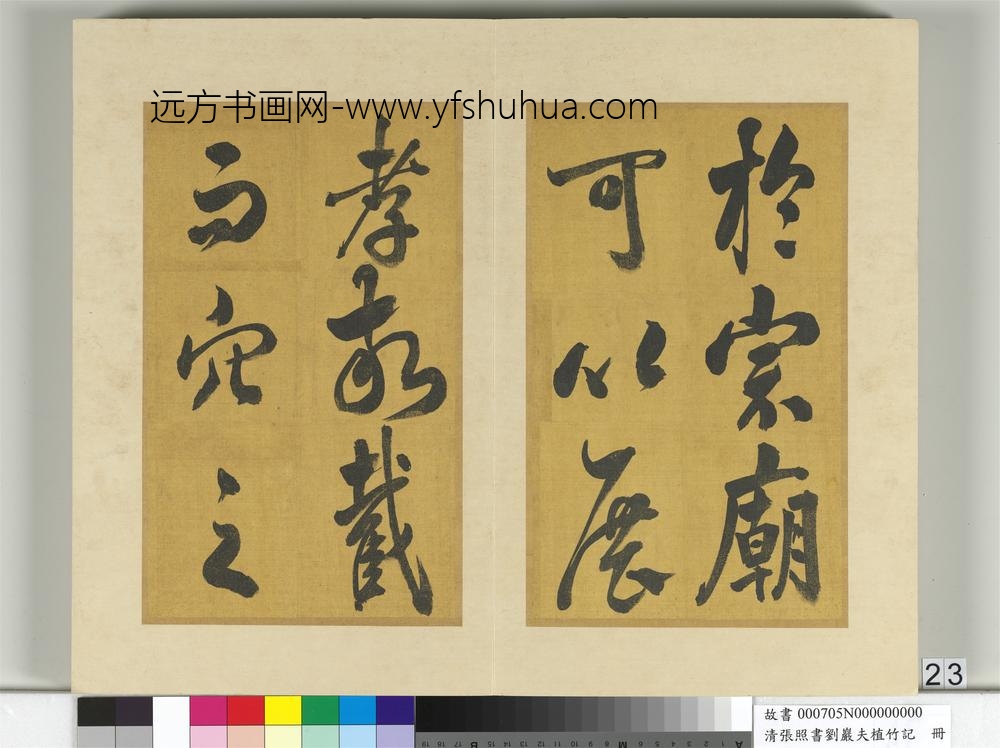 远方书画网-www.yfshuhua.com
於宗廟
可以展
孝敬截
而穴之
23
故書 000705N000000000
清張照書劉巖夫植竹記 冊